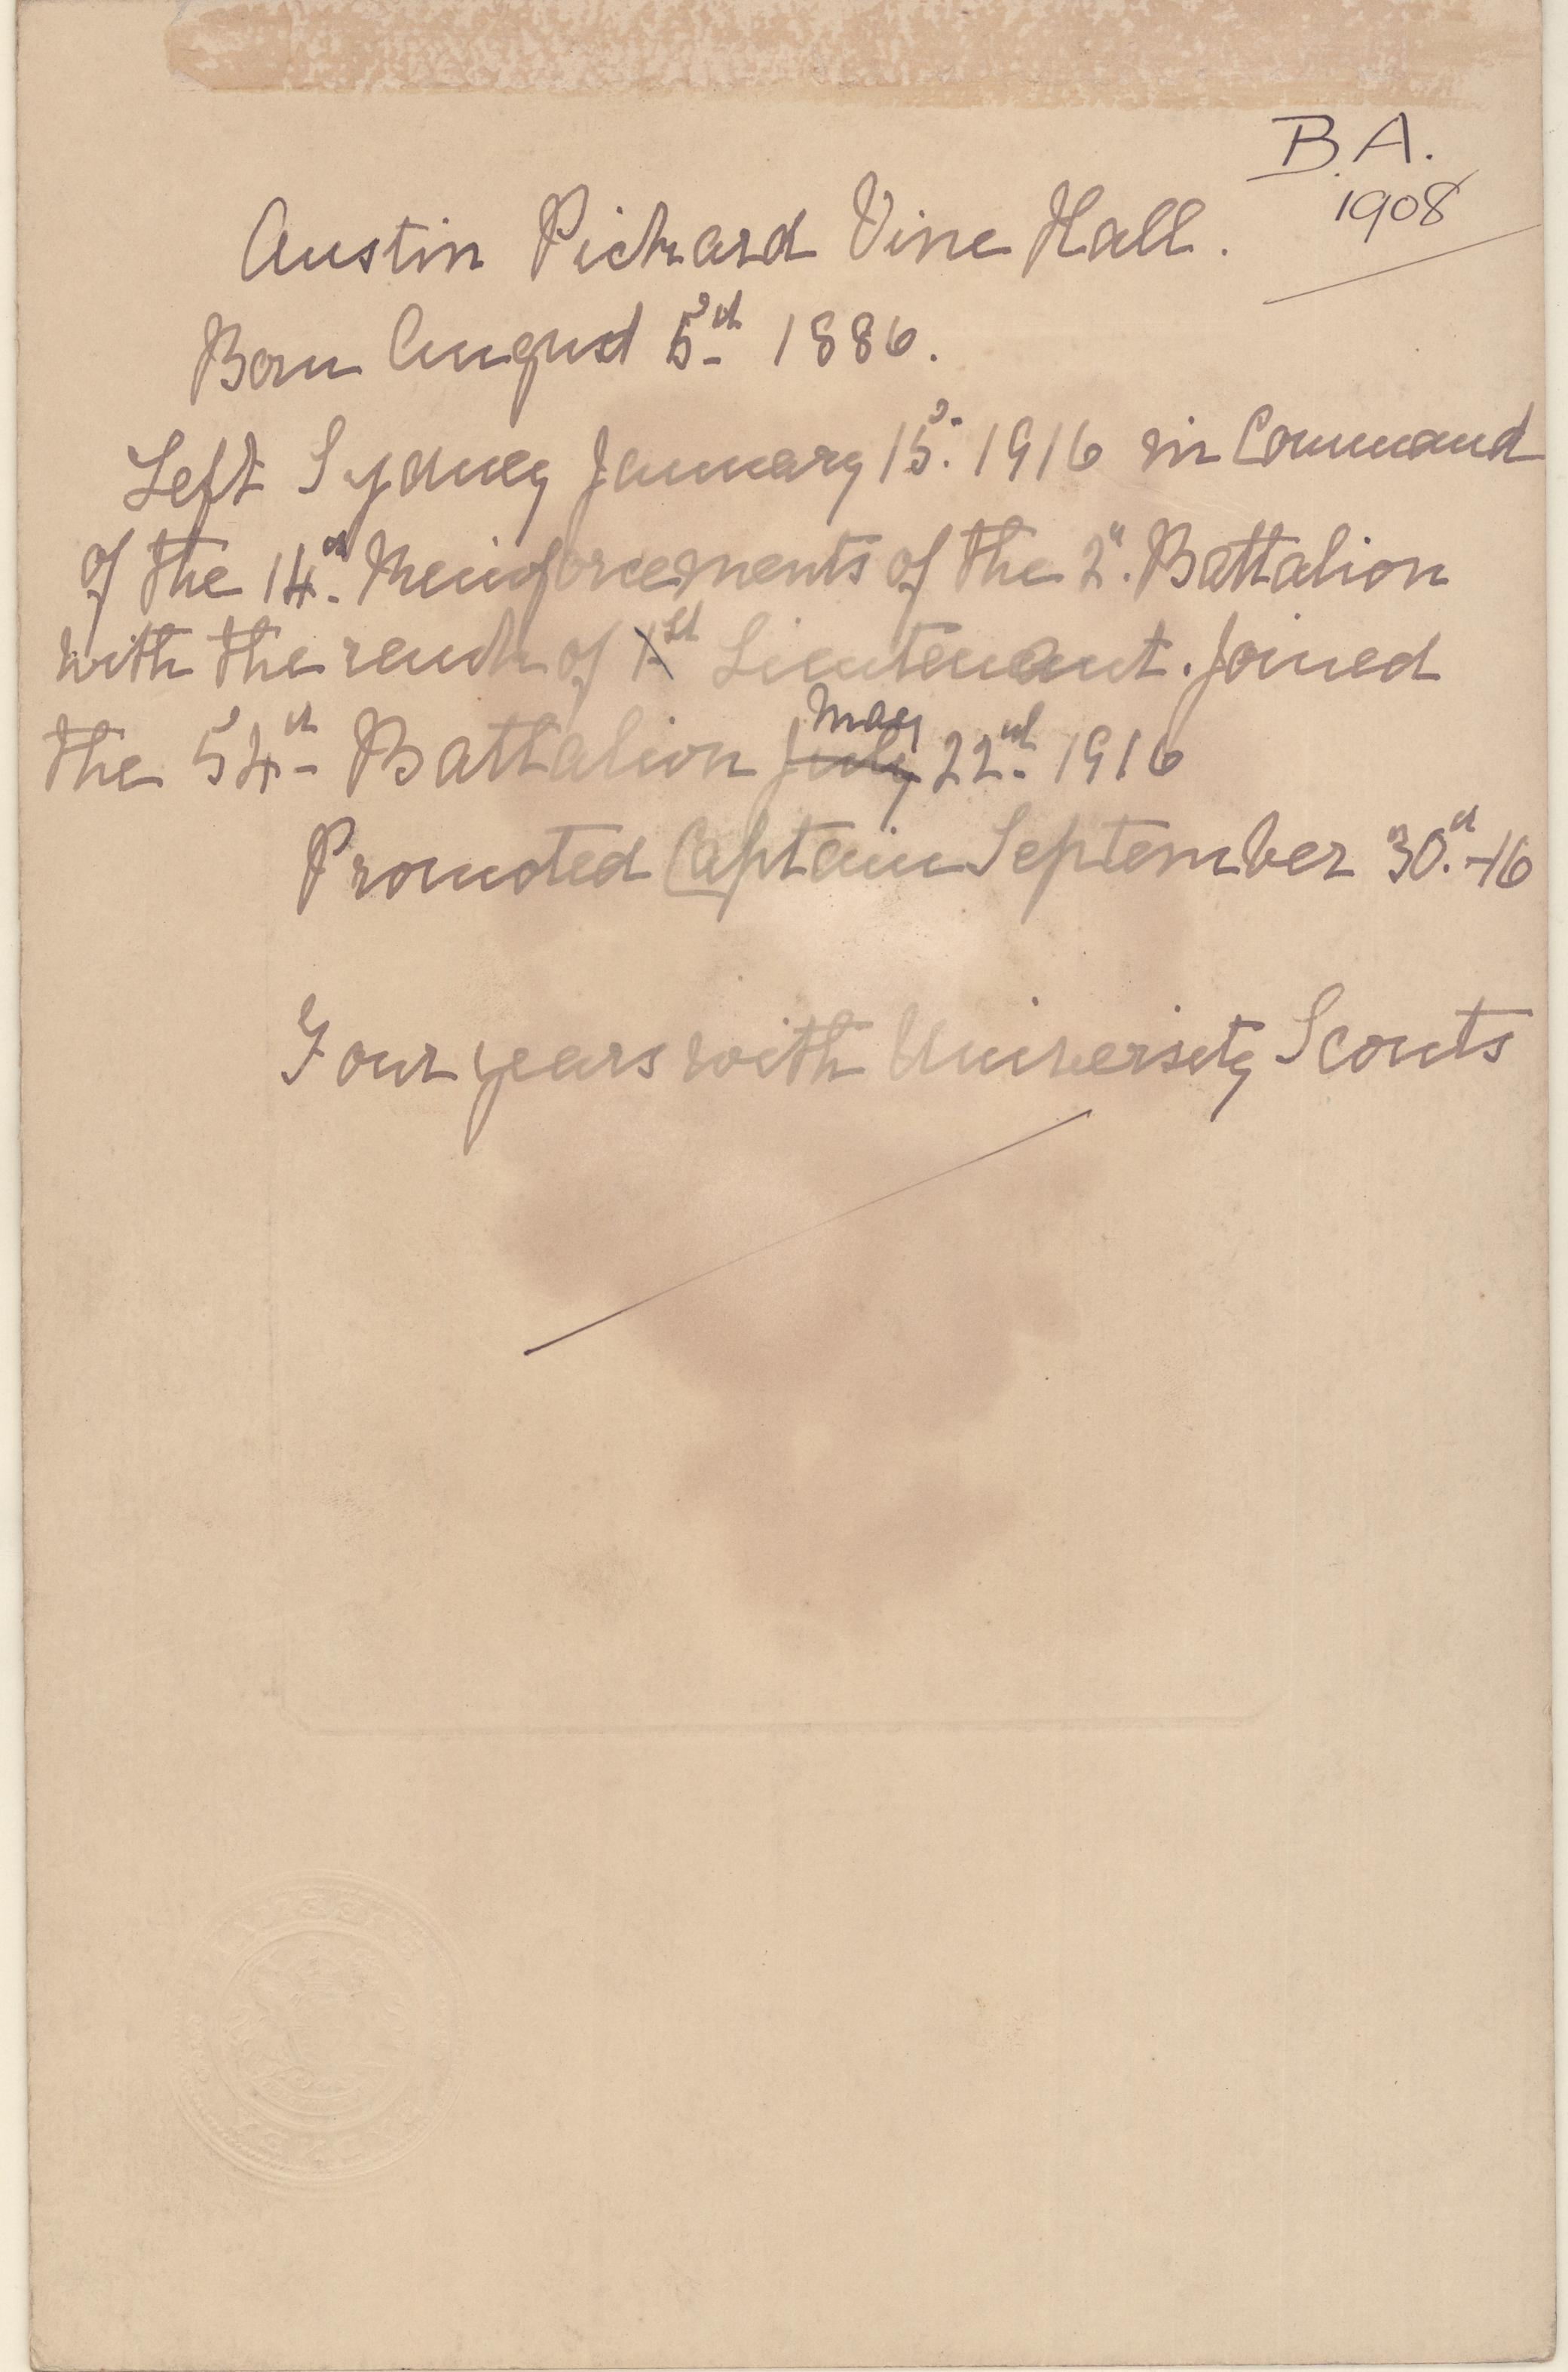 B.A.
1908
Austin Pickard Vine Hall.
Born August 5th 1886.
Left Sydney January 15. 1916 in Command
of the 14th Reinforcements of the 2". Battalion
with the rank of 1st Lieutenant. Joined
the 54th Battalion July May 22nd 1916
Promoted Captain September 30th -16
Four years with University Scouts